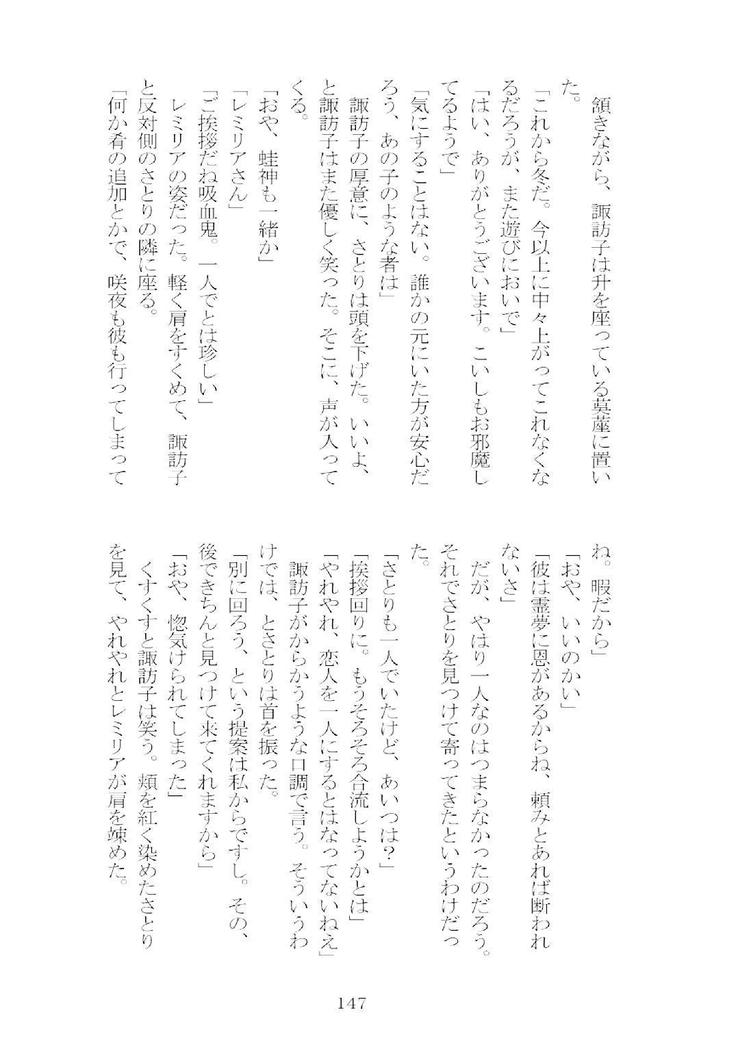 頷きながら、諏訪子は升を座っている茣蓙に置い
た。
「これから冬だ。今以上に中々上がってこれなくな
るだろうが、また遊びにおいで」
「はい、ありがとうございます。こいしもお邪魔し
てるようで」
「気にすることはない。誰かの元にいた方が安心だ
ろう、あの子のような者は」
　諏訪子の厚意に、さとりは頭を下げた。いいよ、
と諏訪子はまた優しく笑った。そこに、声が入って
くる。
「おや、蛙神も一緒か」
「レミリアさん」
「ご挨拶だね吸血鬼。一人でとは珍しい」
　レミリアの姿だった。軽く肩をすくめて、諏訪子
と反対側のさとりの隣に座る。
「何か肴の追加とかで、咲夜も彼も行ってしまって
ね。暇だから」
「おや、いいのかい」
「彼は霊夢に恩があるからね、頼みとあれば断われ
ないさ」
　だが、やはり一人なのはつまらなかったのだろう。
それでさとりを見つけて寄ってきたというわけだっ
た。
「さとりも一人でいたけど、あいつは？」
「挨拶回りに。もうそろそろ合流しようかとは」
「やれやれ、恋人を一人にするとはなってないねえ」
　諏訪子がからかうような口調で言う。そういうわ
けでは、とさとりは首を振った。
「別に回ろう、という提案は私からですし。その、
後できちんと見つけて来てくれますから」
「おや、惚気けられてしまった」
　くすくすと諏訪子は笑う。頬を紅く染めたさとり
を見て、やれやれとレミリアが肩を竦めた。
147